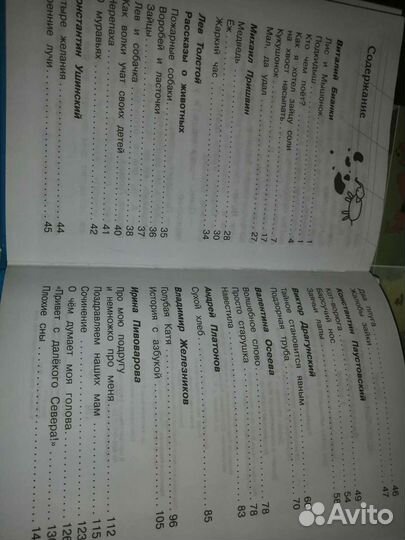 Содержание
Виталий Бианки
Лис и Мышонок . . . 1
Подкидыш . . . 1
Кто чем поёт? . . . 4
Как я хотел зайцу соли
на хвост насыпать . . . 7
Кукушонок . . . 17
Мал, да удал . . . 27
Михаил Пришвин
Медведь . . . 28
Ёж . . . 30
Жаркий час . . . 34
Лев Толстой
Рассказы о животных
Пожарные собаки . . . 35
Воробей и ласточки . . . 36
Зайцы . . . 37
Лев и собачка . . . 38
Как волки учат своих детей . . . 40
Черепаха . . . 41
О муравьях . . . 42
Константин Ушинский
Четыре желания . . . 44
Утренние лучи . . . 45
Два плуга . . . 46
Жалобы зайки . . . 47
Константин Паустовский
Кот-ворюга . . . 49
Барсучий нос . . . 54
Заячьи лапы . . . 58
Виктор Драгунский
Тайное становится явным . . . 60
Подзорная труба . . . 70
Валентина Осеева
Волшебное слово . . . 78
Просто старушка . . . 78
Навестила . . . 83
Андрей Платонов
Сухой хлеб . . . 85
Владимир Железников
Голубая Катя . . . 96
История с азбукой . . . 105
Ирина Пивоварова
Про мою подругу
и немножко про меня . . . 112
Поздравляем наших мам . . . 115
Сочинение . . . 123
О чём думает моя голова . . . 126
«Привет с далёкого Севера!» . . . 130
Плохие сны . . . 14
Avito